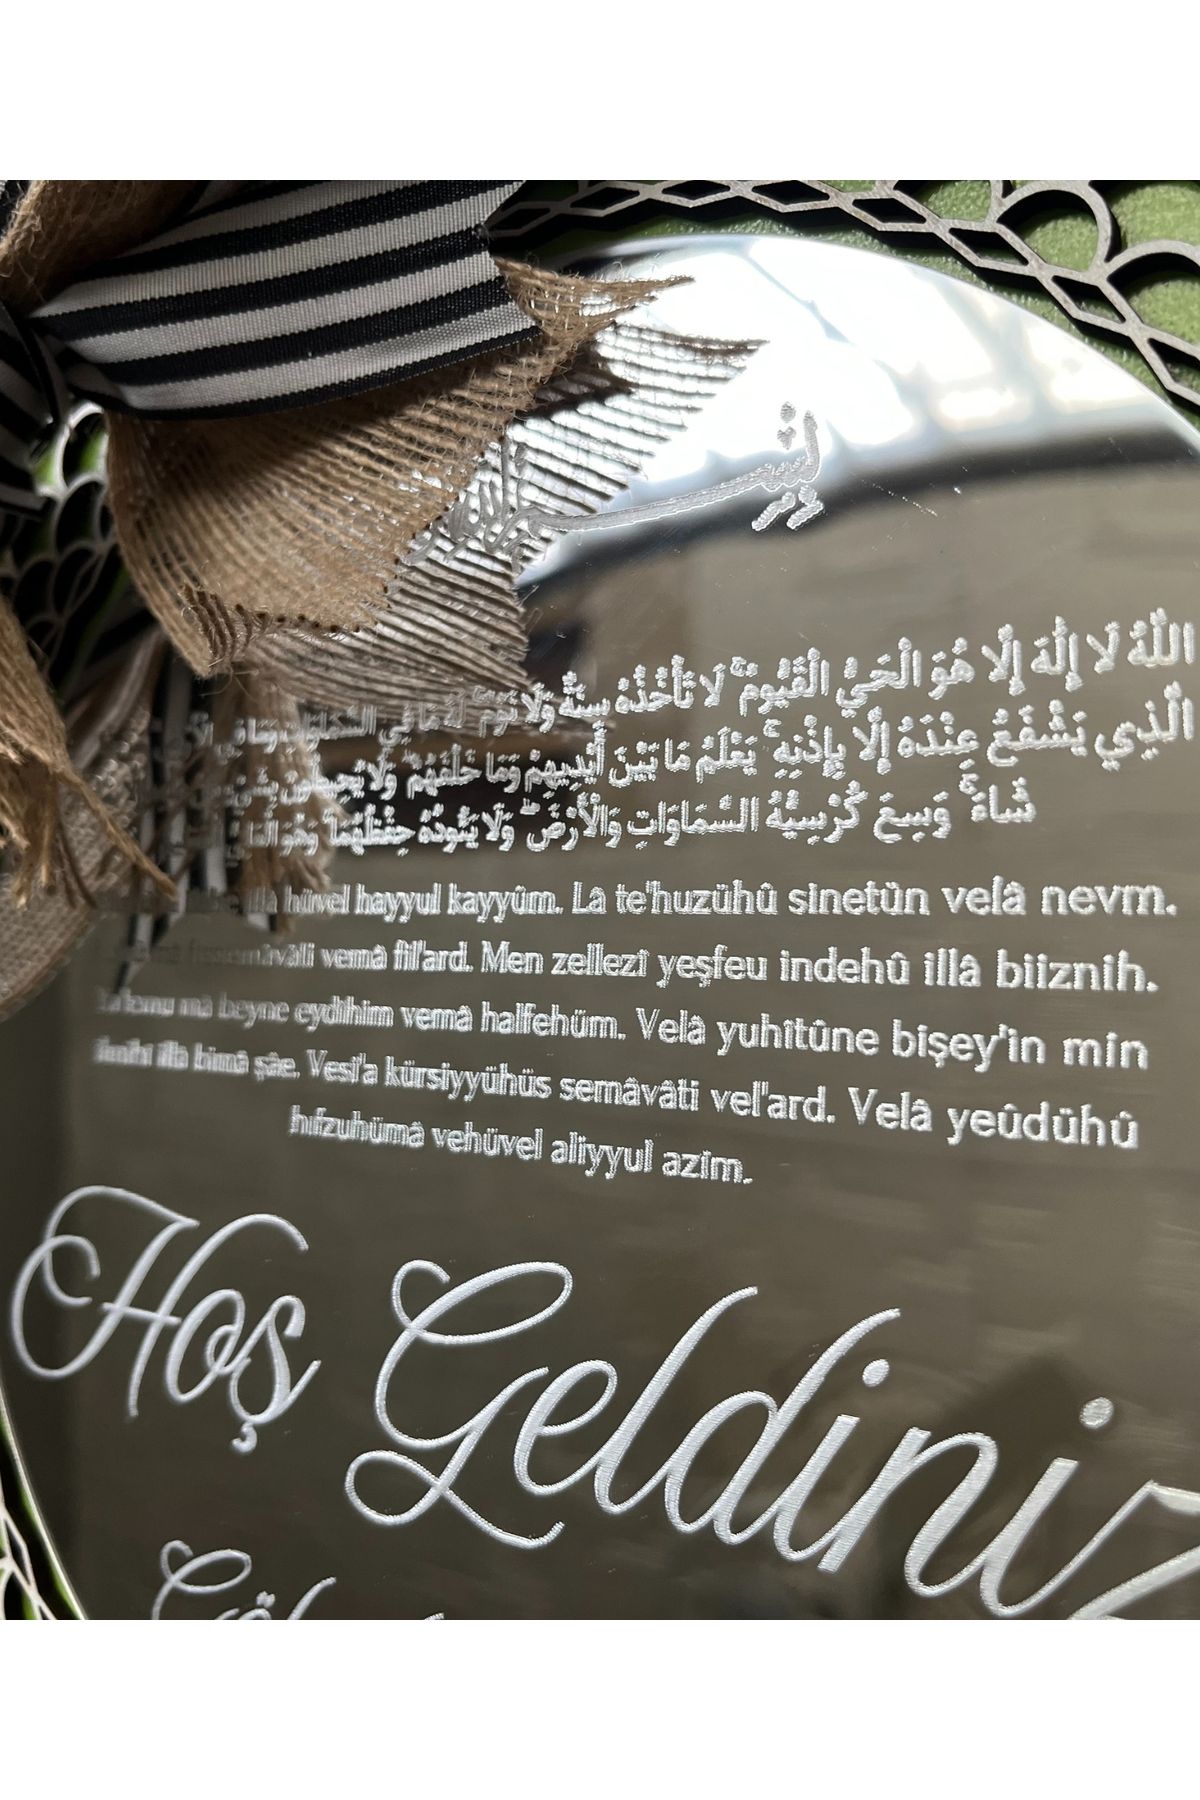 اللّٰهُ لَا إِلٰهَ إِلَّا هُوَ الْحَيُّ الْقَيُّومُ ۚ لَا تَأْخُذُهُ سِنَةٌ وَلَا نَوْمٌ ۚ لَهُ مَا فِي السَّمَاوَاتِ وَمَا فِي
الَّذِي يَشْفَعُ عِنْدَهُ إِلَّا بِإِذْنِهِ ۚ يَعْلَمُ مَا بَيْنَ أَيْدِيهِمْ وَمَا خَلْفَهُمْ ۖ وَلَا يُحِيطُونَ
شَاءَ ۚ وَسِعَ كُرْسِيُّهُ السَّمَاوَاتِ وَالْأَرْضَ ۖ وَلَا يَئُودُهُ حِفْظُهُمَا ۚ وَهُوَ
illâ hüvel hayyul kayyûm. Lâ te'huzühû sinetün velâ nevm.
vemâ fil'ard. Men zellezî yeşfeu indehû illâ biiznih.
mâ beyne eydîhim vemâ halfehüm. Velâ yuhîtûne bişey'in min
ilmihî illâ bimâ şâe. Vesi'a kürsiyyühüs semâvâti vel'ard. Velâ yeûdühû
hıfzuhümâ vehüvel aliyyul azîm.
Hoş Geldiniz